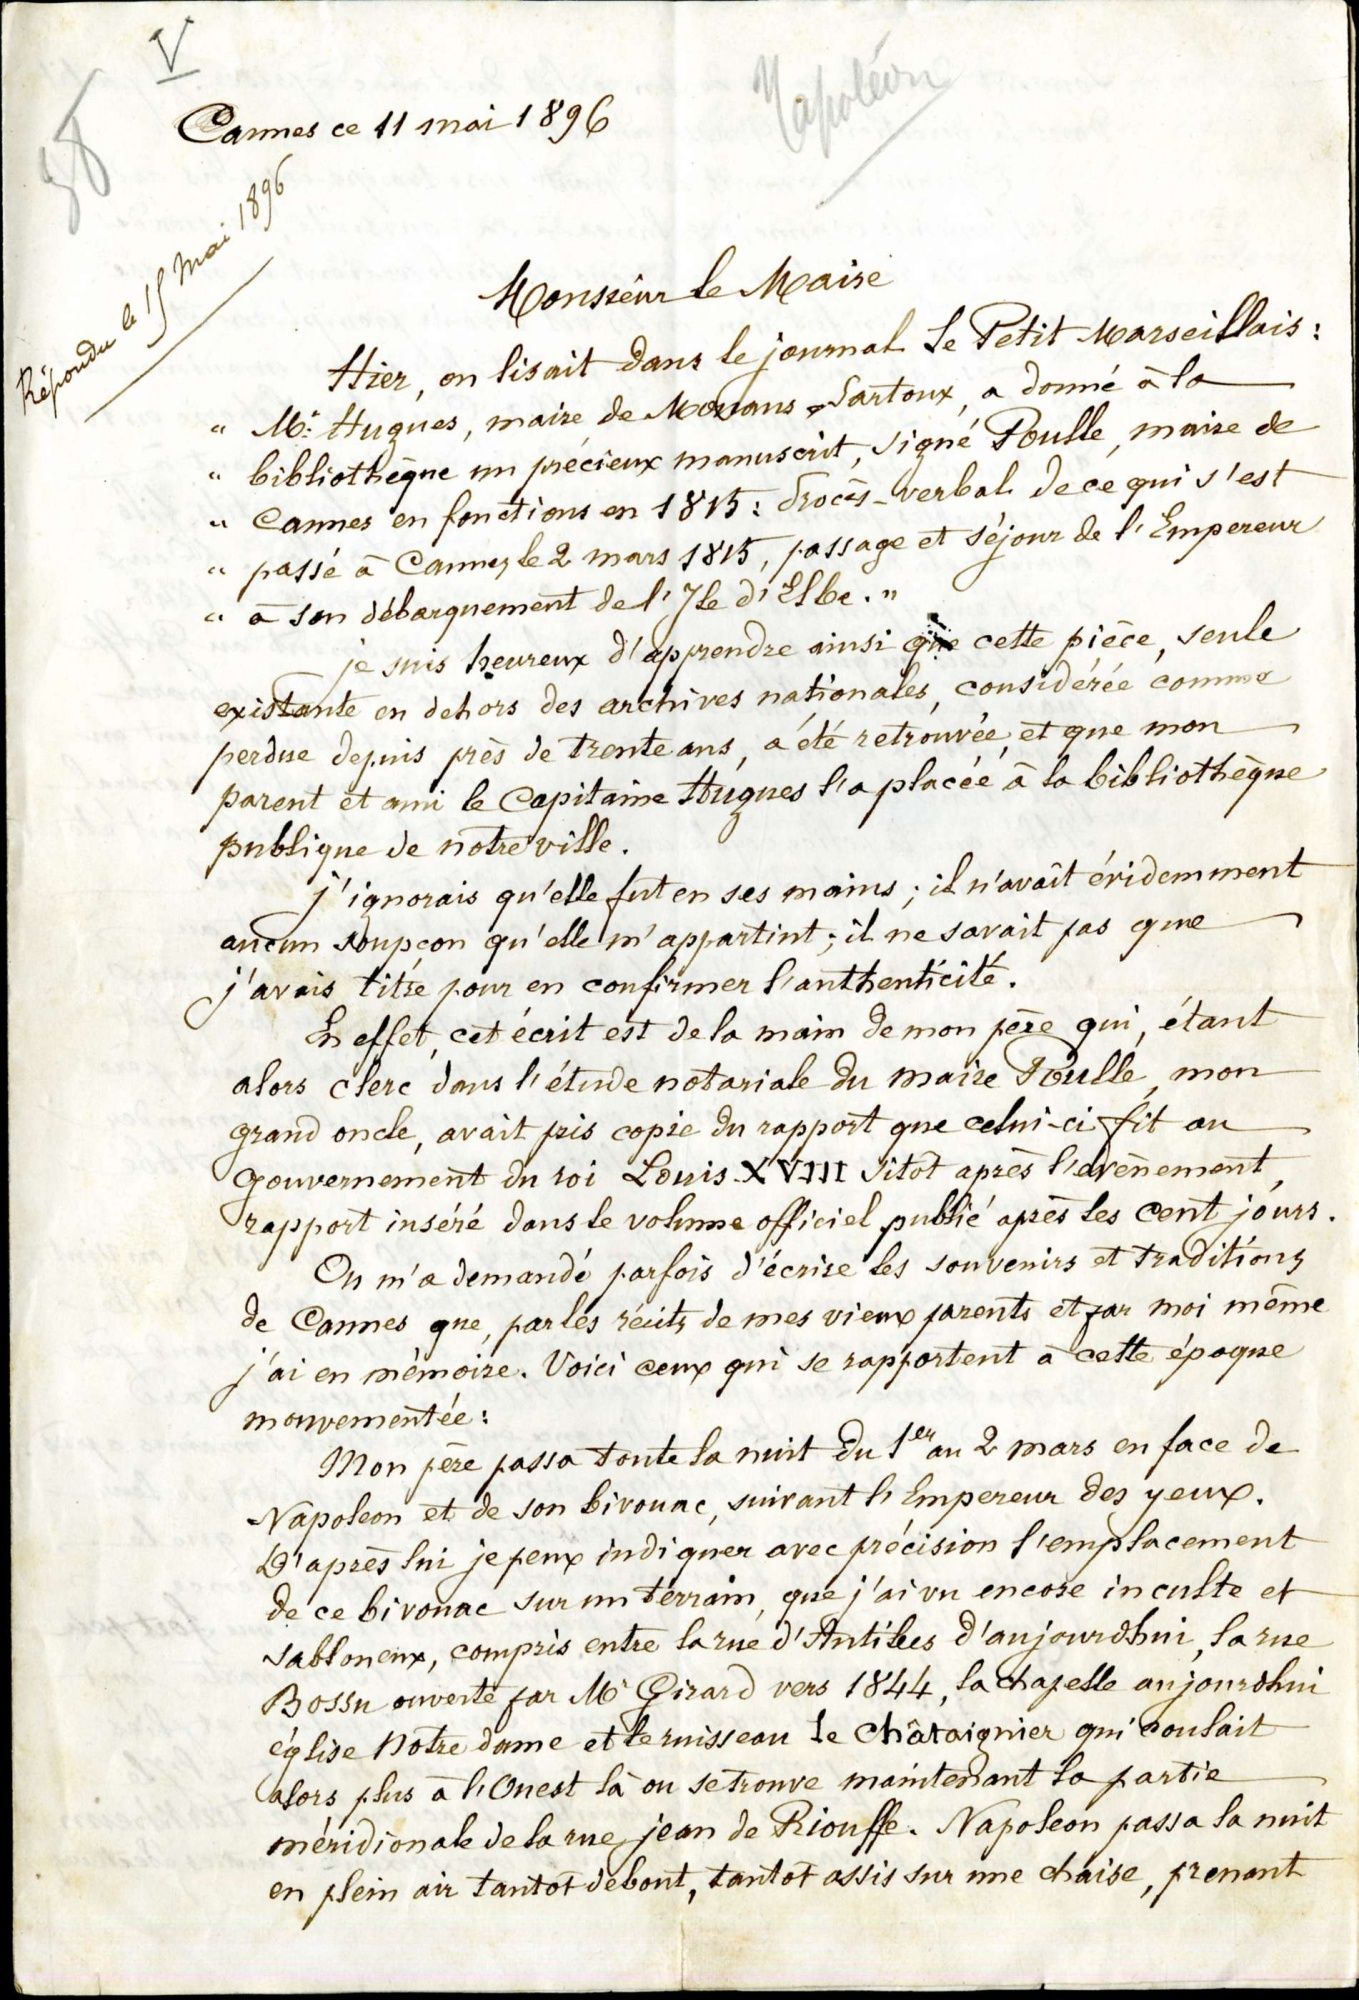 V
Napoléon
58
Cannes ce 11 mai 1896
Répondu le 15 Mai 1896
Monsieur le Maire
Hier, on lisait dans le journal Le Petit Marseillais :
" Mr. Hugues, maire de Mouans-Sartoux, a donné à la
" bibliothèque un précieux manuscrit, signé Poulle, maire de
" Cannes en fonctions en 1815 : Procès-verbal de ce qui s'est
" passé à Cannes, le 2 mars 1815, passage et séjour de l'Empereur
" à son débarquement de l'Ile d'Elbe. "
je suis heureux d'apprendre ainsi que cette pièce, seule
existante en dehors des archives nationales, considérée comme
perdue depuis près de trente ans, a été retrouvée, et que mon
parent et ami le Capitaine Hugues l'a placée à la bibliothèque
publique de notre ville.
j'ignorais qu'elle fut en ses mains ; il n'avait évidemment
aucun soupçon qu'elle m'appartint ; il ne savait pas que
j'avais titre pour en confirmer l'authenticité.
En effet, cet écrit est de la main de mon père qui, étant
alors clerc dans l'étude notariale du maire Poulle, mon
grand oncle, avait pris copie du rapport que celui-ci fit au
gouvernement du roi Louis XVIII sitôt après l'evènement,
rapport inséré dans le volume officiel publié après les cent jours.
On m'a demandé parfois d'écrire les souvenirs et traditions
de Cannes que, par les récits de mes vieux parents et par moi même
j'ai en mémoire. Voici ceux qui se rapportent à cette époque
mouvementée :
Mon père passa toute la nuit du 1er au 2 mars en face de
Napoleon et de son bivouac, suivant l'Empereur des yeux.
D'après lui je peux indiquer avec précision l'emplacement
de ce bivouac sur un terrain, que j'ai vu encore inculte et
sabloneux, compris entre la rue d'Antibes d'aujourdhui, la rue
Bossu ouverte par Mr Girard vers 1844, la chapelle aujourdhui
église Notre dame et le ruisseau le Châtaignier qui coulait
alors plus à l'Ouest là ou se trouve maintenant la partie
méridionale de la rue jean de Riouffe. Napoleon passa la nuit
en plein air tantôt debout, tantôt assis sur une chaise, prenant